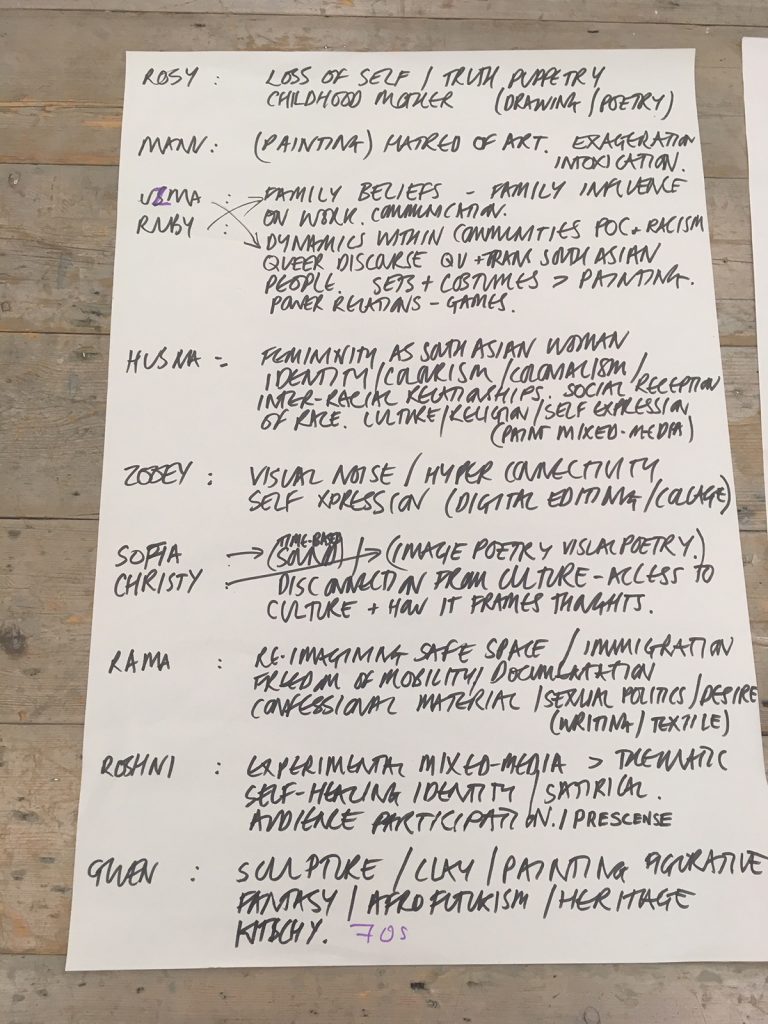 ROSY : LOSS OF SELF / TRUTH PUPPETRY
CHILDHOOD MOTHER (DRAWING / POETRY)
MANN : (PAINTING) HATRED OF ART. EXAGERATION
INTOXICATION.
UZMA : FAMILY BELIEFS - FAMILY INFLUENCE
ON WORK. COMMUNICATION.
RUBY :
DYNAMICS WITHIN COMMUNITIES POC + RACISM
QUEER DISCOURSE QU + TRANS SOUTH ASIAN
PEOPLE. SETS + COSTUMES > PAINTING.
POWER RELATIONS - GAMES.
HUSNA - FEMININITY AS SOUTH ASIAN WOMAN
IDENTITY / COLOURISM / COLONIALISM /
INTER-RACIAL RELATIONSHIPS. SOCIAL RECEPTION
OF RACE. CULTURE / RELIGION / SELF EXPRESSION
(PAINT MIXED-MEDIA)
ZOBEY : VISUAL NOISE / HYPER CONNECTIVITY
SELF XPRESSION (DIGITAL EDITING / COLLAGE)
TIME-BASED
SOFIA → (SOUND) / → (IMAGE POETRY VISUAL POETRY.)
CHRISTY : DISCONNECTION FROM CULTURE - ACCESS TO
CULTURE + HOW IT FRAMES THOUGHTS.
RAMA : RE-IMAGINING SAFE SPACE / IMMIGRATION
FREEDOM OF MOBILITY / DOCUMENTATION
CONFESSIONAL MATERIAL / SEXUAL POLITICS / DESIRE
(WRITING / TEXTILE)
ROSHNI : EXPERIMENTAL MIXED-MEDIA > THEMATIC
SELF-HEALING IDENTITY / SATIRICAL.
AUDIENCE PARTICIPATION. / PRESCENSE
GWEN : SCULPTURE / CLAY / PAINTING FIGURATIVE
FANTASY / AFROFUTURISM / HERITAGE
KITSCHY. 70s